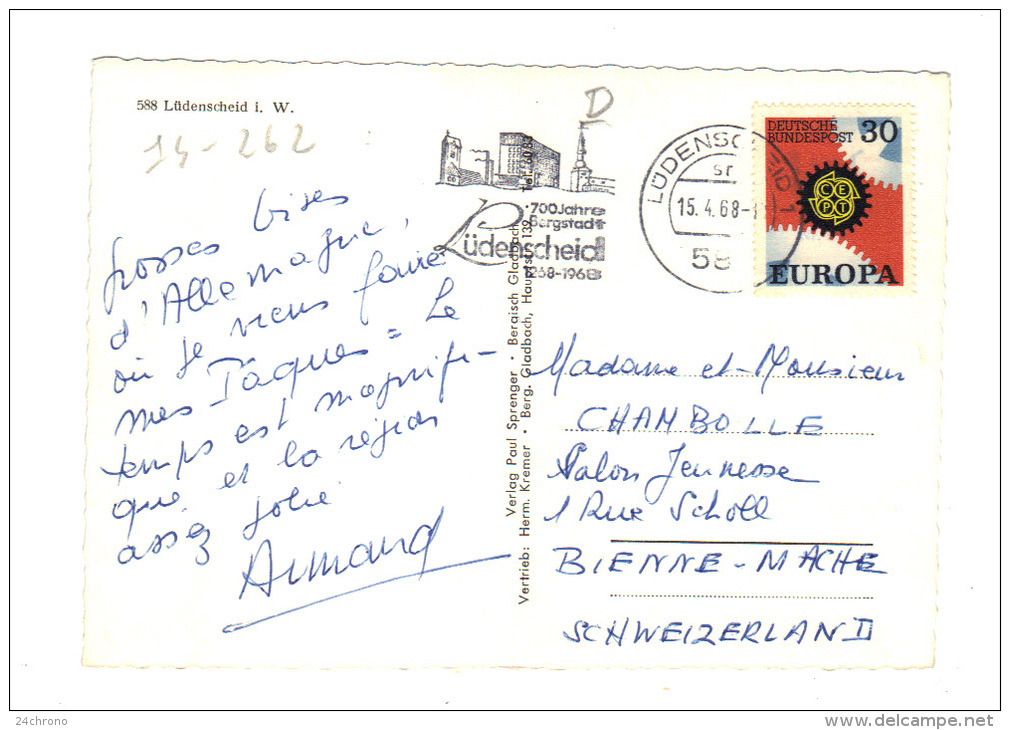 588 Lüdenscheid i. W.
14-262
D
700 Jahre
Bergstadt
Lüdenscheid
1268-1968
LÜDENSCHEID 1
15.4.68-
58
DEUTSCHE
BUNDESPOST 30
CEPT
EUROPA
Grosses bises
d'Allemagne,
où je viens faire
mes Pâques = Le
temps est magnifi-
que et la région
assez jolie
Armand
Verlag Paul Sprenger • Bergisch Gladbach
Vertrieb: Herm. Kremer • Berg. Gladbach, Hauptstr. 139 Tel. 6083
Madame et Monsieur
CHAMBOLLE
Salon Jeunesse
1 Rue Scholl
BIENNE-MACHE
SCHWEIZERLAND
24chrono
www.delcampe.net